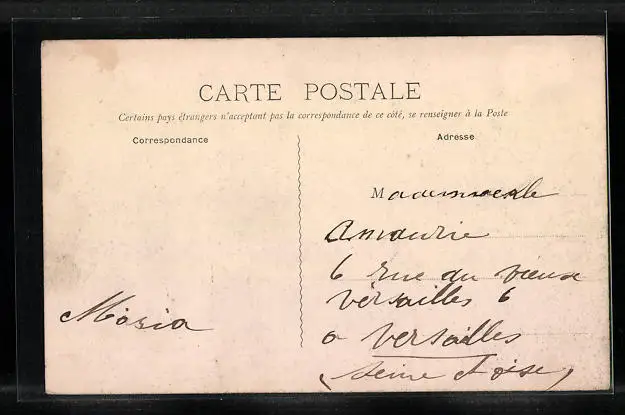 CARTE POSTALE
Certains pays étrangers n'acceptant pas la correspondance de ce côté, se renseigner à la Poste
Correspondance
Adresse
Mademoiselle
Amaurie
6 rue du vieux
versailles 6
a versailles
(seine et oise)
Mosia